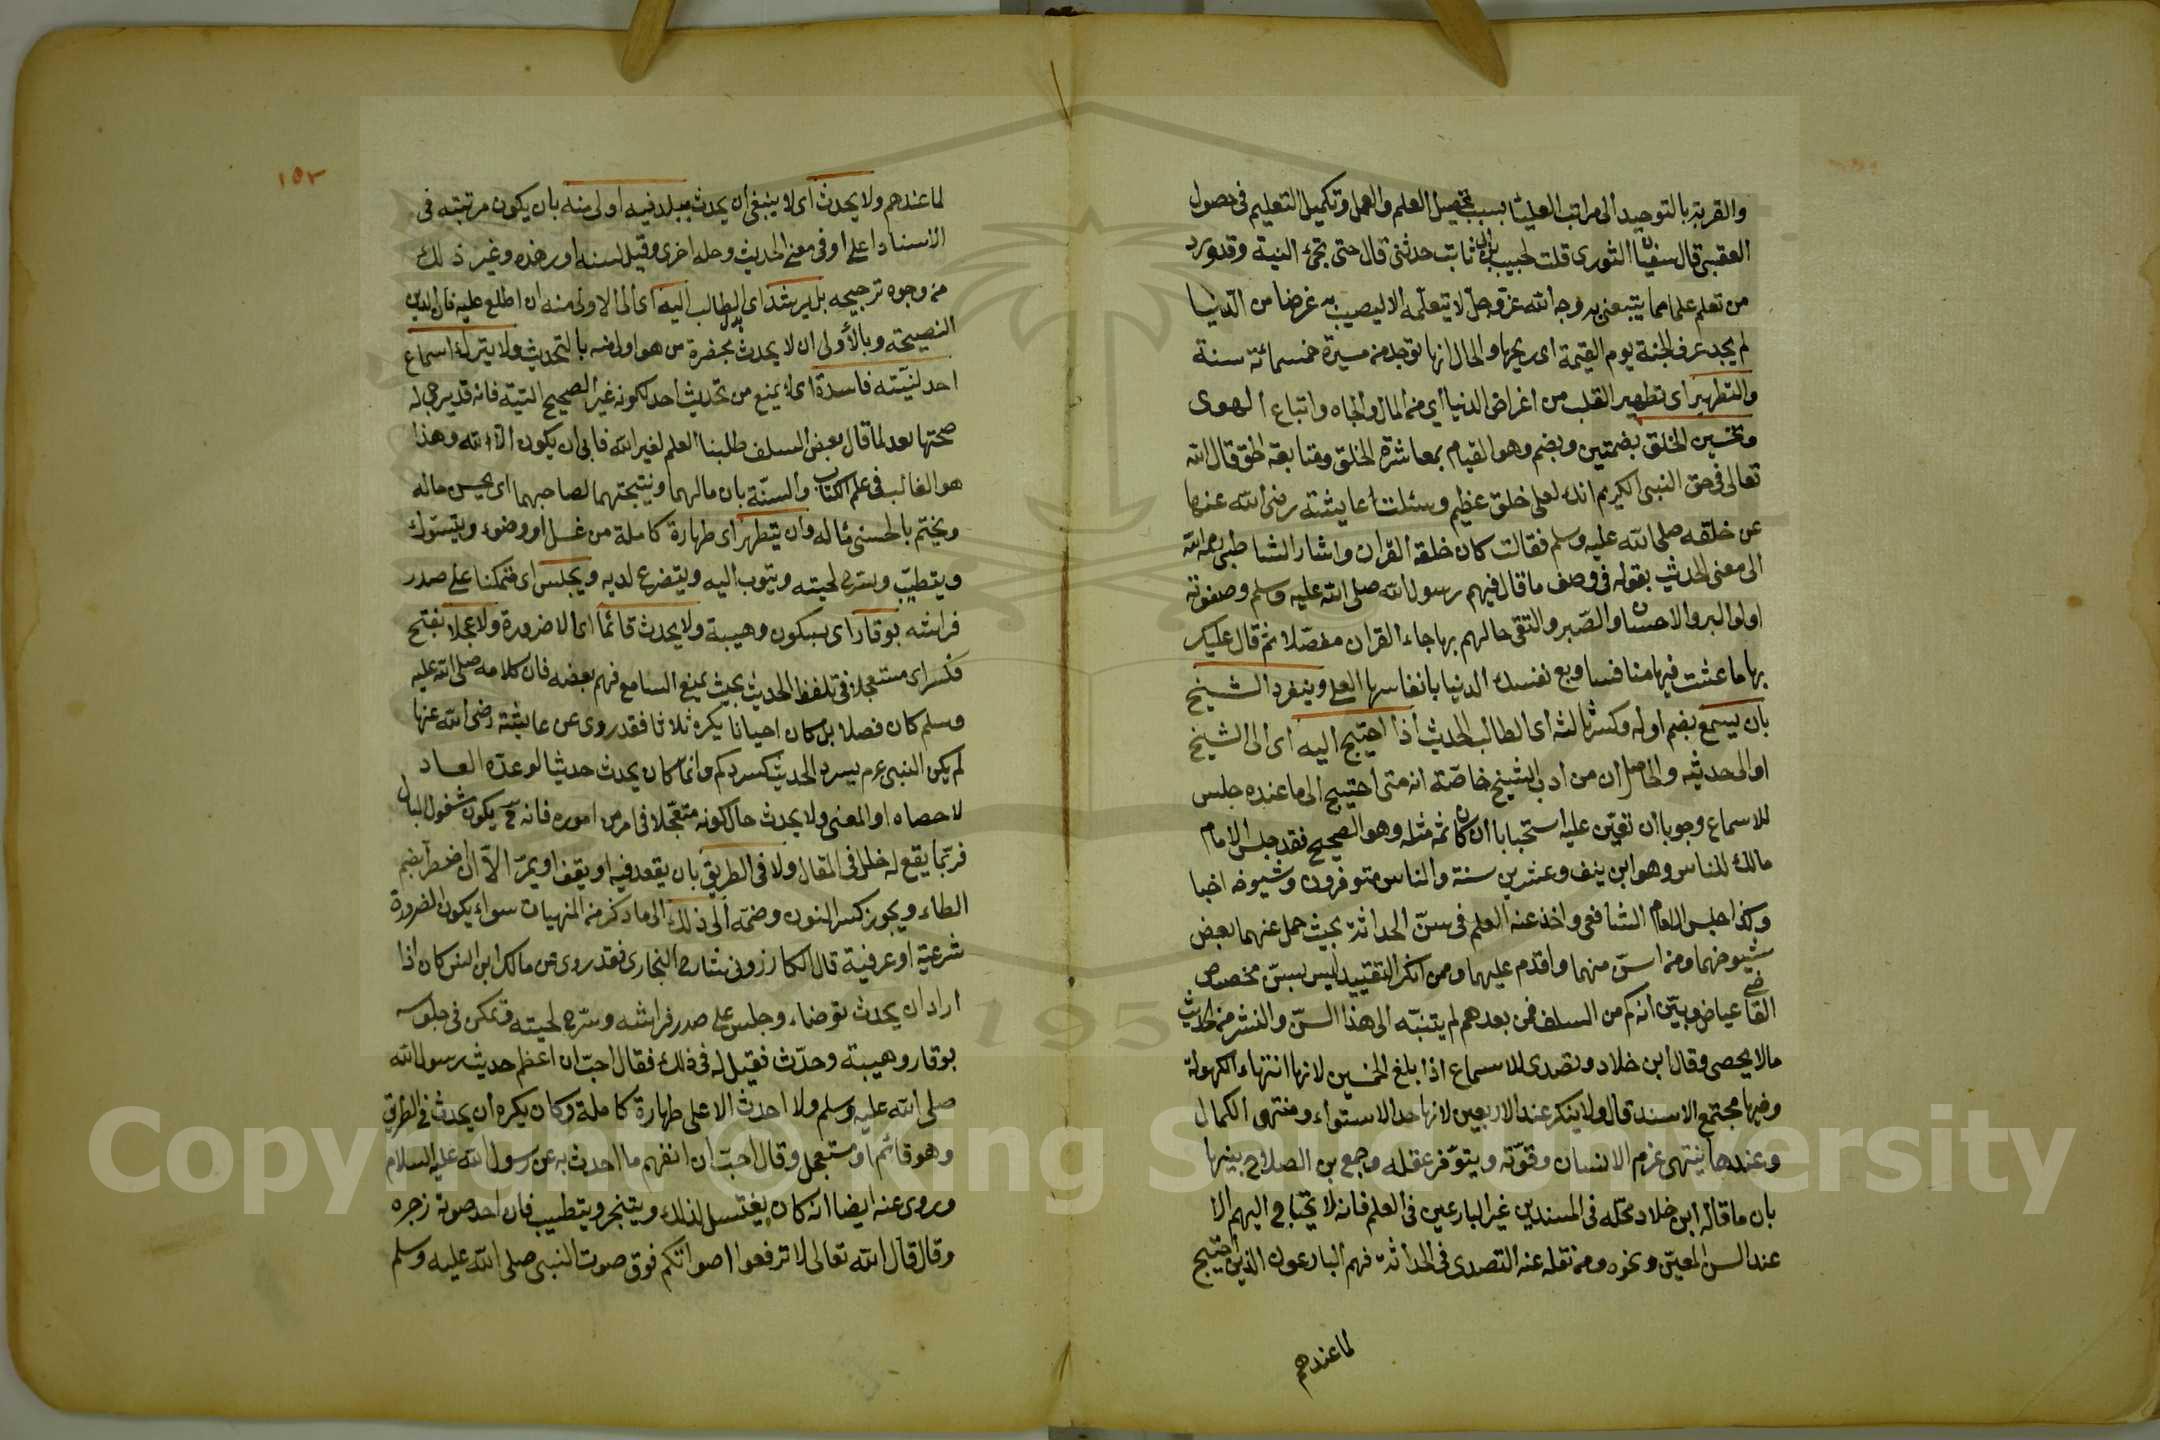 والقربة بالتوحيد الى مراتب العليا بسبب تحصيل العلم والعمل وتكميل التعليم فى حصول
العقبى قال سفيان الثورى قلت لحبيب بن ثابت حدثنى قال حتى تجئ النية وقد ورد
من تعلم علما مما يبتغى به وجه الله عز وجل لا يتعلمه الا ليصيب به غرضا من الدنيا
لم يجد عرف الجنة يوم القيمة اى ريحها والحال انها توجد من مسيرة خمسمائة سنة
والتطهير اى تطهير القلب من اغراض الدنيا اى من المال والجاه واتباع الهوى
وتحسين الخلق بضمتين وبضم وهو القيام بمعاشرة الخلق ومتابعة الحق قال الله
تعالى فى حق النبى الكريم انك لعلى خلق عظيم وسئلت عايشة رضى الله عنها
عن خلقه صلى الله عليه وسلم فقالت كان خلقه القران واشار الشاطبى رحمه الله
الى معنى الحديث بقوله فى وصف ما قال فيهم رسول الله صلى الله عليه وسلم وصفوته
اولوا البر والاحسان والصبر والتقى حالهم بها جاء القران مفصلا ثم قال عليك
بها ما عشت فيها منافسا وبع نفسك الدنيا بانفاسها العلى وينفرد الشيخ
بان يسمع بضم اوله وكسر ثالثه اى الطالب الحديث اذا احتيج اليه اى الى الشيخ
او الى حديثه والحاصل ان من ادب الشيخ خاصة انه متى احتيج الى ما عنده جلس
للاسماع وجوبا ان تعين عليه استحبابا ان كان ثمه مثله وهو الصحيح فقد جلس الامام
مالك للناس وهو ابن ينف وعشرين سنة والناس متوفرون وشيوخه احيا
وكذا جلس الامام الشافعى واخذ عنه العلم فى سن الحداثة بحيث حمل عنهما بعض
شيوخهما ومن اسن منهما واقدم عليهما وممن انكر التقييد ليس بسن مخصوص
القاضى عياض وبين انه كم من السلف فمن بعدهم لم يتنبه الى هذا السن والنشر من الحديث
ما لا يحصى وقال ابن خلاد وتصدى للاسماع اذا بلغ الخمسين لانها انتهاء الكهولة
وفيها مجتمع الاسند قال ولا ينكر عند الاربعين لانها حد الاستواء ومنتهى الكمال
وعندها ينتهى عزم الانسان وقوته ويتوفر عقله وجمع بن الصلاح بينها
بان ما قاله ابن خلاد محله فى المسندين غير البارعين فى العلم فانه لا يحتاج اليهم الا
عند السن المعين ونحوه ومن نقله عنه التصدى فى الحداثة فهم البارعون الذين احتيج
لما عندهم
١٥٢
لما عندهم ولا يحدث اى لا ينبغى ان يحدث ببلد فيه اولى منه بان يكون مرتبته فى
الاسناد اعلى او فى معنى الحديث وحله اخرى وقيل لسنه او زهده وغير ذلك
من وجوه ترجيحه بل يرشد اى الطالب اليه اى الى الاولى منه ان اطلع عليه فان الدين
النصيحة وبالأولى ان لا يحدث بحضرة من هو اولى منه بالتحديث ولا يترك اسماع
احد لنيته فاسدة اى لا يمنع من تحديث احد لكونه غير الصحيح النية فانه قد يرجى له
صحتها بعد لما قال بعض السلف طلبنا العلم لغير الله فابى ان يكون الا لله وهذا
هو الغالب فى علم الكتاب والسنة بان مالهما ونتيجتهما لصاحبهما اى يحسن حاله
ويختم بالحسنى مئاله وان يتطهر اى طهارة كاملة من غسل او وضوء ويتسوك
ويتطيب ويسرح لحيته ويتوب اليه ويتضرع لديه ويجلس اى متمكنا على صدر
فراشه بوقار اى بسكون وهيبة ولا يحدث قائما اى الا ضرورة ولا عجلا بفتح
فكسر اى مستعجلا فى تلفظ الحديث بحيث يمنع السامع فهم بعضه فان كلامه صلى الله عليه
وسلم كان فصلا بل كان احيانا يكره ثلاثا فقد روى عن عايشة رضى الله عنها
لم يكن النبى عم يسرد الحديث كسردكم وانما كان يحدث حديثا لو عده العاد
لاحصاه او المعنى ولا يحدث حال كونه متعجلا فى امر من اموره فانه ح يكون مشغول البال
فربما يقع له خلل فى المقال ولا فى الطريق بان يقعد فيه او يقف او يمر الا ان اضطر بضم
الطاء ويجوز كسر النون وضمه الى ذلك الى ما ذكر من المنهيات سواء يكون الضرورة
شرعية او عرفية قال الكازرونى شارح البخارى فقد روى عن مالك ابن انس كان اذا
اراد ان يحدث توضاء وجلس على صدر فراشه وسرح لحيته وتمكن فى جلوسه
بوقار وهيبة وحدث فقيل له فى ذلك فقال احب ان اعظم حديث رسول الله
صلى الله عليه وسلم ولا احدث الا على طهارة كاملة وكان يكره ان يحدث فى الطريق
وهو قائم او مستعجل وقال احب ان اتفهم ما احدث به عن رسول الله عليه السلام
وروى عنه ايضا انه كان يغتسل لذلك ويتبخر ويتطيب فان احد صوته زجره
وقال قال الله تعالى لا ترفعوا اصواتكم فوق صوت النبى صلى الله عليه وسلم
Copyright © King Saud University
195